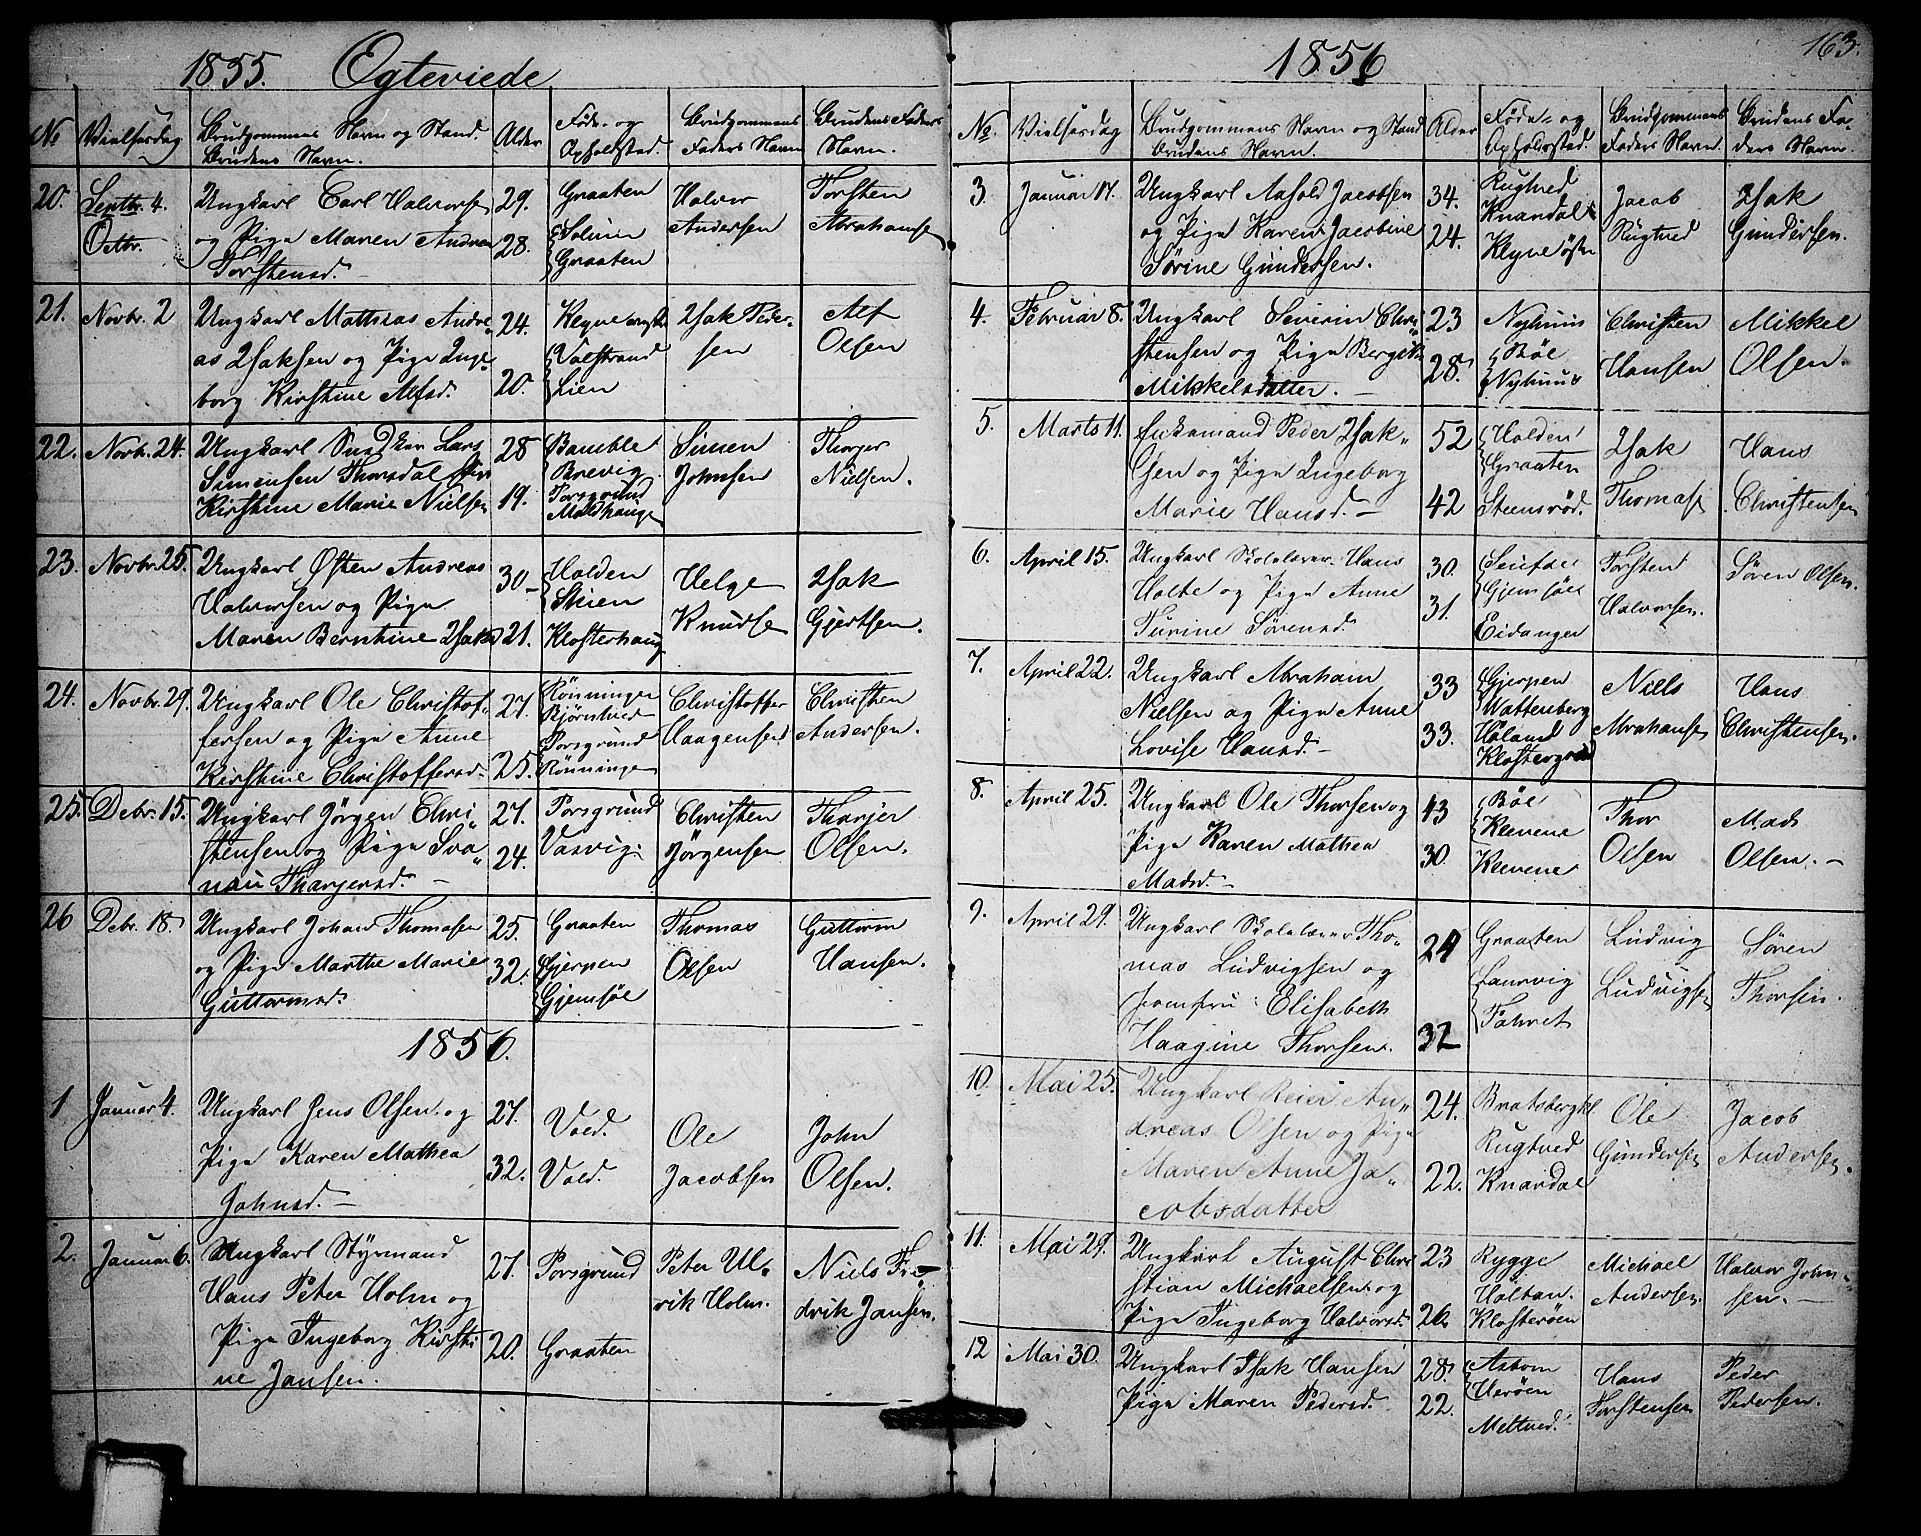 1855. Egteviede
No
Vielsesdag
Brudgommens Navn og Stand.
Brudens Navn.
Alder
Føde- og
Opholdsstad.
Brudgommens
Faders Navn
Brudens Faders
Navn.
20.
Septbr. 4.
Octbr.
Ungkarl Carl Halvorsen
og Pige Maren Andrea
Torstensd.
29.
28.
Graaten
Solum
Graaten
Halvor
Andersen
Torsten
Abrahamsen
21.
Novbr. 2
Ungkarl Mathias Andre„
as Isaksen og Pige Inge„
borg Kirstine Alfsd.
24.
20.
Klyve
Volstrand
Lien
Isak Peder-
sen
Alf
Olsen
22.
Novbr. 24.
Ungkarl Lars
Simensen Thorsdal
Kirstine Marie Nielsen
28
19.
Bamble
Brevig
Porsgrund
Simen
Johnsen
Thorjer
Nielsen.
23.
Novbr. 25.
Ungkarl Østen Andreas
Halvorsen og Pige
Maren Bernthine Isaksd
30
21.
Holden
Skien
Klosterhaug
Helge
Knudsen
Isak
Gjertsen.
24.
Novbr. 29.
Ungkarl Ole Christof„
fersen og Pige Anne
Kirstine Christoffersd.
27.
25.
Rønningen
Bjørntved
Porsgrund
Rønningen
Christoffer
Haagensen
Christen
Andersen.
25.
Debr. 15.
Ungkarl Jörgen Chri„
stensen og Pige Sva„
nau Tharjersd.
27.
24.
Porsgrund
Vasvig
Christen
Jörgensen
Tharjer
Olsen.
26
Debr. 18.
Ungkarl Johan Thomasen
og Pige Marthe Marie
Guttormsd.
25.
32.
Graaten
Gjerpen
Gjemsöe
Thomas
Olsen
Guttorm
Hansen.
1856.
1
Januar 4.
Ungkarl Jens Olsen og
Pige Karen Mathea
Johnsd.
27.
32.
Vold.
Vold.
Ole
Jacobsen
John
Olsen.
2.
Januar 6.
Ungkarl Styrmand
Hans Peter Holm og
Pige Ingeborg Kirsti
ne Jansen.
27.
20.
Porsgrund
Graaten
Peter Ul„
rik Holm.
Niels Fre
drik Jansen.
1856
163.
No.
Vielsesdag
Brudgommens Navn og Stand
Brudens Navn.
Alder
Føde- og
Opholdsstad.
Brudgommens
Faders Navn.
Brudens Fa-
ders Navn.
3.
Januar 17.
Ungkarl Jacobsen
og Pige Karen Jacobine
Sörine Gundersen.
34.
24.
Rugtved
Knardal
Klyve
Jacob
Rugtved
Isak
Gundersen.
4.
Februar 8.
Ungkarl Severin Chri
stensen og Pige
Mikkelsdatter.
23
28.
Nyhuus
Böe
Nyhuus
Christen
Hansen
Mikkel
Olsen.
5.
Marts 11.
Enkemand Peder Isak„
sen og Pige Ingeborg
Marie Hansd.
52
42
Holden
Graaten
Steensröd.
Isak
Thomas
Hans
Christensen
6.
April 15.
Ungkarl Skolelærer Hans
Holte og Pige Anne
Turine Sörensd.
30.
31.
Gjemsöe
Eidanger
Torsten
Halvorsen.
Sören Olsen.
7.
April 22.
Ungkarl Abraham
Nielsen og Pige Anne
Lovise Hansd.
33
33.
Gjerpen
Wattenberg
Klostergrd
Niels
Abrahamsen
Hans
Christensen.
8.
April 25.
Ungkarl Ole Thorsen og
Pige Karen Mathea
Madsd.
43
30.
Böe
Klevene
Klevene
Thor
Olsen
Mads
Olsen.
9.
April 29.
Ungkarl Skolelærer Tho„
mas Ludvigsen og
Jomfru Elisabeth
Haagine Thorsen.
29
32
Graaten
Laurvig
Ludvig
Ludvigsen
Sören
Thorsen.
10.
Mai 25.
Ungkarl Reier An„
dreas Olsen og Pige
Maren Anne Ja„
cobsdatter
24.
22.
Bratsbergkl
Rugtved
Knardal
Ole
Gundersen
Jacob
Andersen.
11.
Mai 29.
Ungkarl August Chri
stian Michaelsen og
Pige Ingeborg Halvorsd.
23
26.
Rygge
Holtan.
Klosteröen
Michael
Andersen.
Halvor John„
sen.
12
Mai 30.
Ungkarl Isak Hansen
Pige Maren Pedersd.
28.
22.
Heröen
Meltved.
Hans
Torstensen
Peder
Pedersen.